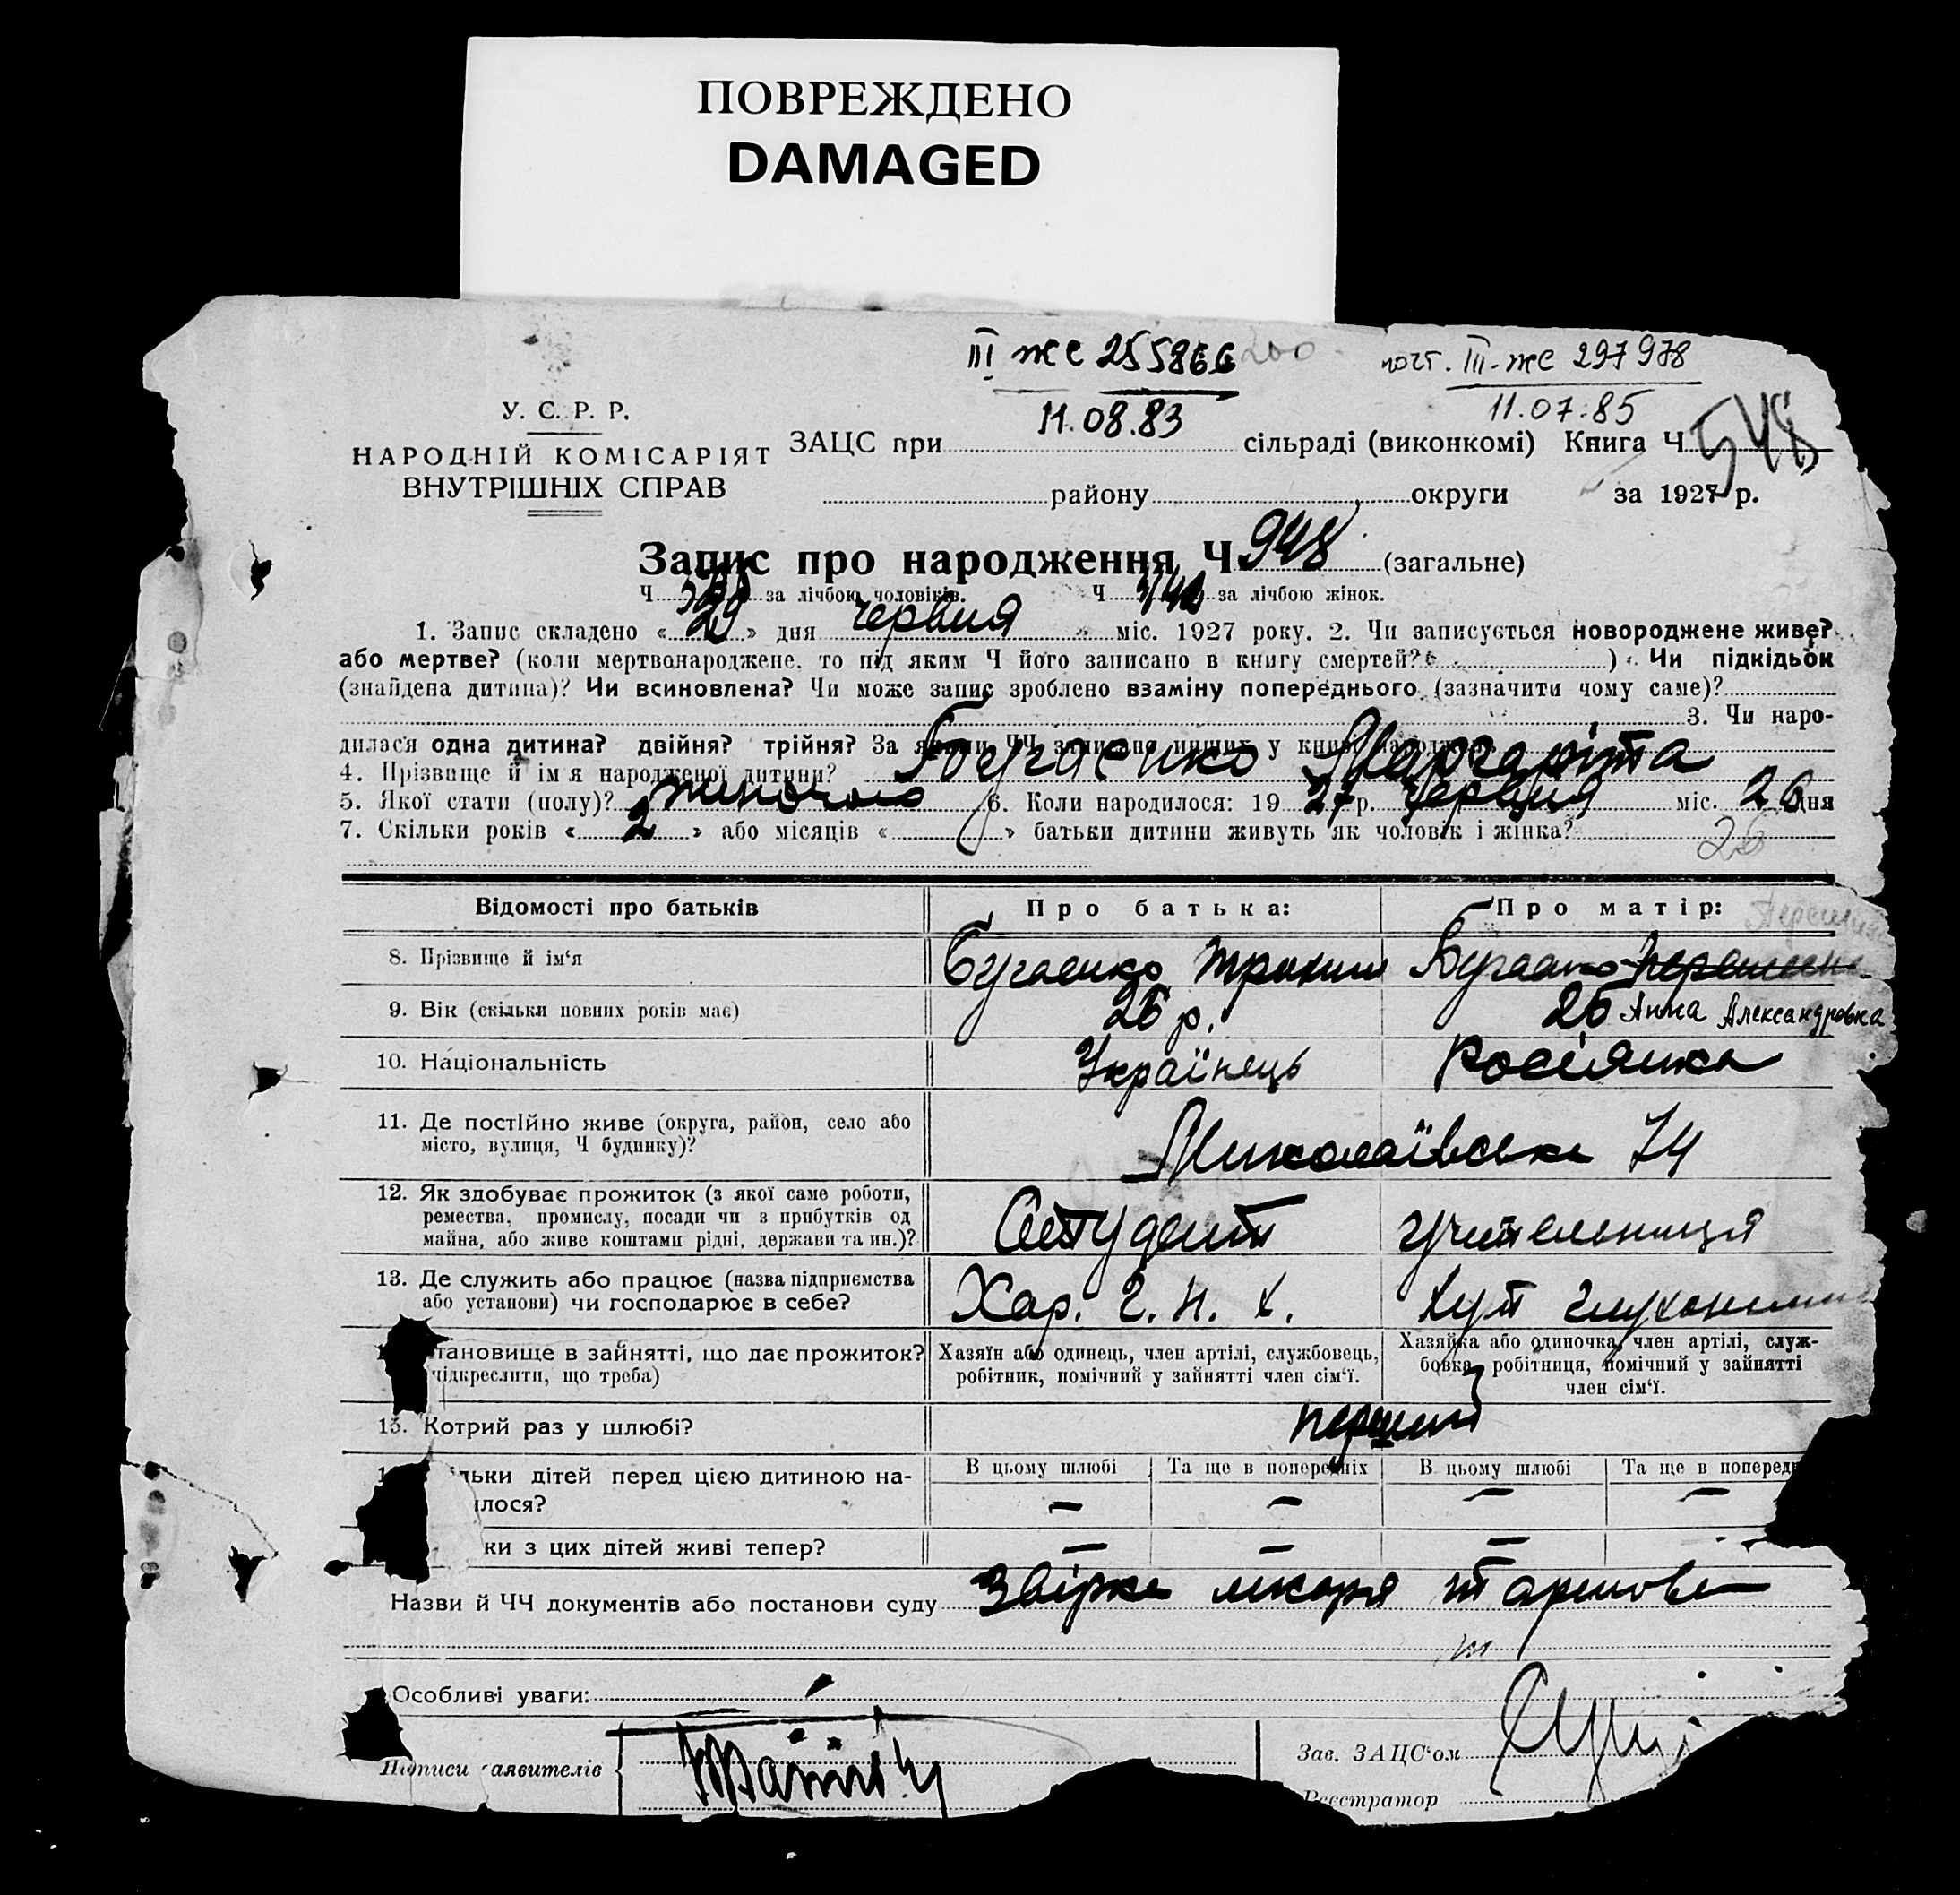 ПОВРЕЖДЕНО
DAMAGED
III ЖС 255866 200
почт. III-ЖС 297978
11.08.83
11.07.85
У. С. Р. Р.
НАРОДНІЙ КОМІСАРІЯТ
ВНУТРІШНІХ СПРАВ
ЗАЦС при сільраді (виконкомі) Книга Ч 548
району округи за 1927 р.
Запис про народження Ч 948 (загальне)
Ч за лічбою чоловіків. Ч за лічбою жінок.
1. Запис складено « 29 » дня червня міс. 1927 року. 2. Чи записується новороджене живе?
або мертве? (коли мертвонароджене, то під яким Ч його записано в книгу смертей? ) Чи підкідьок
(знайдена дитина)? Чи всиновлена? Чи може запис зроблено взаміну попереднього (зазначити чому саме)?
3. Чи наро-
дилася одна дитина? двійня? трійня? За якими ЧЧ записано инших у книзі
4. Прізвище й імя народженої дитини? Бугаєнко Маргаріта
5. Якої стати (полу)? жиночого 6. Коли народилося: 19 27 р. червня міс. 26 дня
7. Скільки років « 2 » або місяців « » батьки дитини живуть як чоловік і жінка? 26
Відомості про батьків Про батька: Про матір:
8. Прізвище й ім‘я Бугаенко Трохим Бугаенко
9. Вік (скільки повних років має) 26 р. 25 Анна Александровна
10. Національність Українець Росіянка
11. Де постійно живе (округа, район, село або
місто, вулиця, Ч будинку)? Миколаївська 74
12. Як здобуває прожиток (з якої саме роботи,
ремества, промислу, посади чи з прибутків од
майна, або живе коштами рідні, держави та ин.)? Студент Учительниця
13. Де служить або працює (назва підприємства
або установи) чи господарює в себе? Хар.
тановище в зайнятті, що дає прожиток?
підкреслити, що треба)
Хазяїн або одинець, член артілі, службовець,
робітник, помічний у зайнятті член сім‘ї.
Хазяйка або одиночка, член артілі, служ-
бовка, робітниця, помічний у зайнятті
член сім‘ї.
15. Котрий раз у шлюбі? перший
льки дітей перед цією дитиною на-
илося?
В цьому шлюбі Та ще в попередніх В цьому шлюбі Та ще в попередн
— — — —
ки з цих дітей живі тепер? — — —
Назви й ЧЧ документів або постанови суду лікаря
Особливі уваги:
Підписи заявителів
Зав. ЗАЦС‘ом
Реєстратор